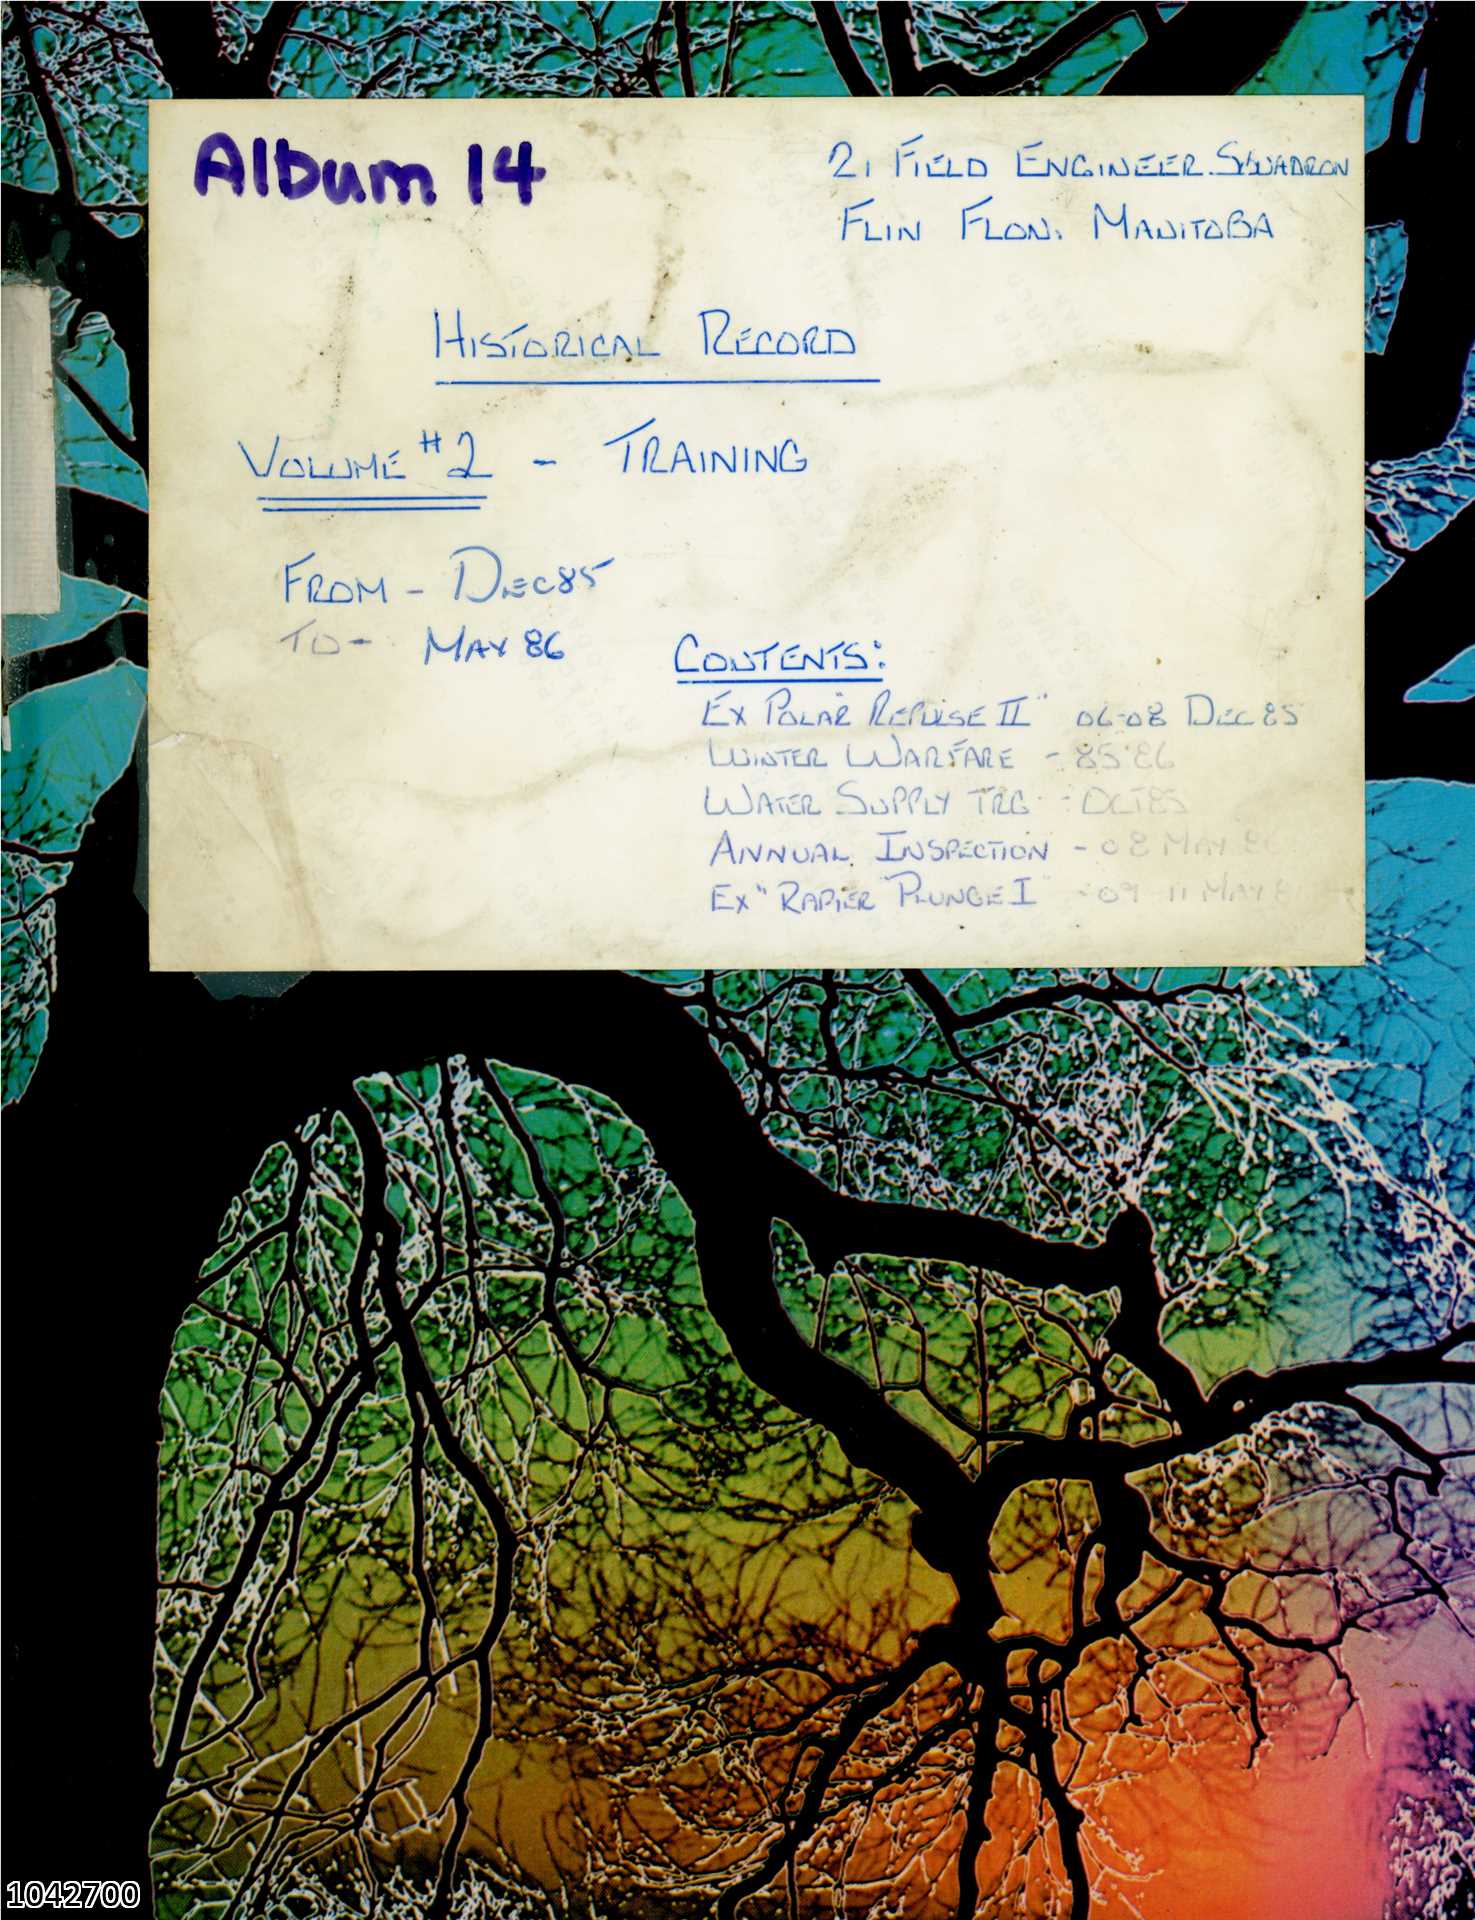 Album 14
21 FIELD ENGINEER SQUADRON
FLIN FLON, MANITOBA
HISTORICAL RECORD
VOLUME #2 - TRAINING
FROM - DEC 85
TO - MAY 86
CONTENTS:
EX POLAR "REPULSE II" 06-08 DEC 85
WINTER WARFARE - 85-86
WATER SUPPLY TRG - OCT 85
ANNUAL INSPECTION - 08 MAY 86
EX "RAPIER PLUNGE I" - 09 11 MAY
1042700